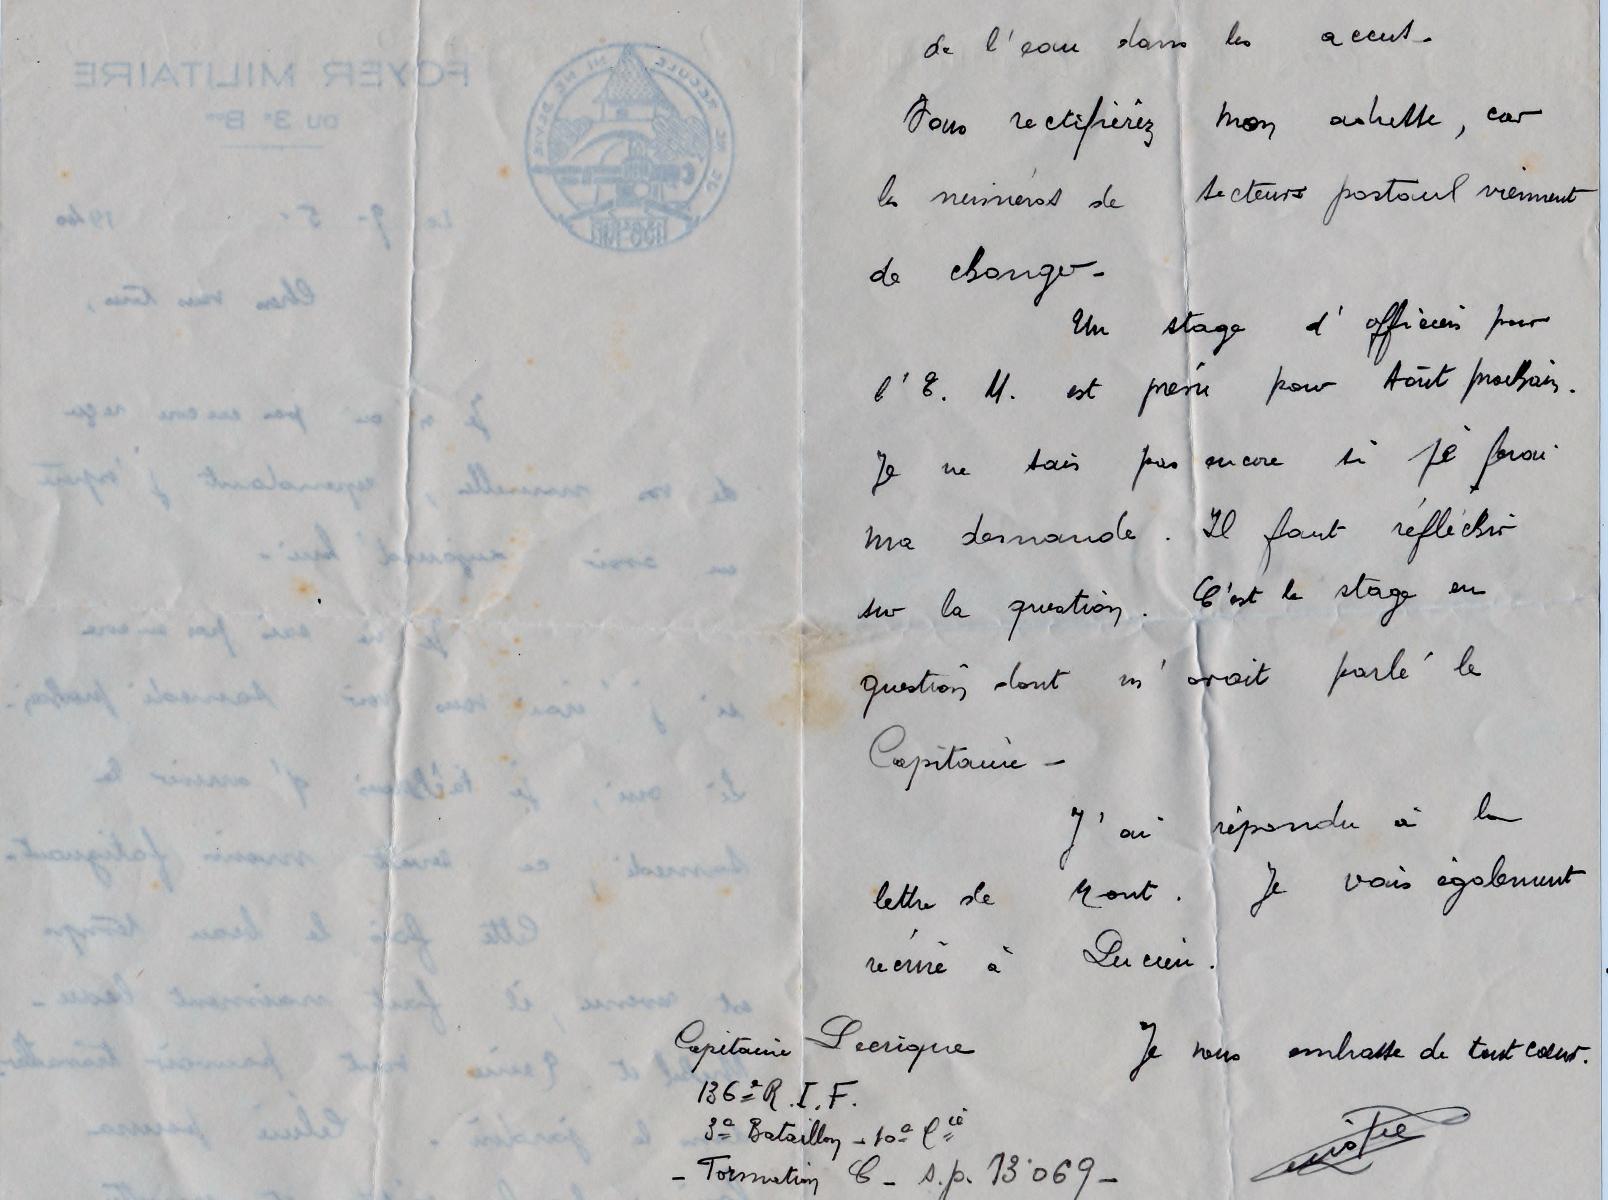 de l'eau dans les accus.
Vous rectifierez mon adresse, car
les numéros de secteurs postaux viennent
de changer.
Un stage d'officiers pour
l'E. M. est prévu pour Août prochain.
Je ne sais pas encore si je ferai
ma demande. Il faut réfléchir
sur la question. C'est le stage en
question dont m'avait parlé le
Capitaine -
J'ai répondu à la
lettre de . Je vais également
récrire à Lucien.
Je vous embrasse de tout cœur.
Capitaine Lecrique
136e R.I.F.
3e Bataillon - 10e Cie
- Formation C - s.p. 13 069 -
FOYER MILITAIRE
DU 3e Bon
Le 9-5. 1940
Chers vous tous,
Je n'ai pas encore reçu
de vos nouvelles, cependant j'espère
en avoir aujourd'hui.
Je ne sais pas encore
si j'irai vous voir samedi prochain.
Si oui, je tâcherais d'arriver le
samedi, ce serait moins fatiguant.
Cette fois, le beau temps
est revenu, il fait vraiment beau.